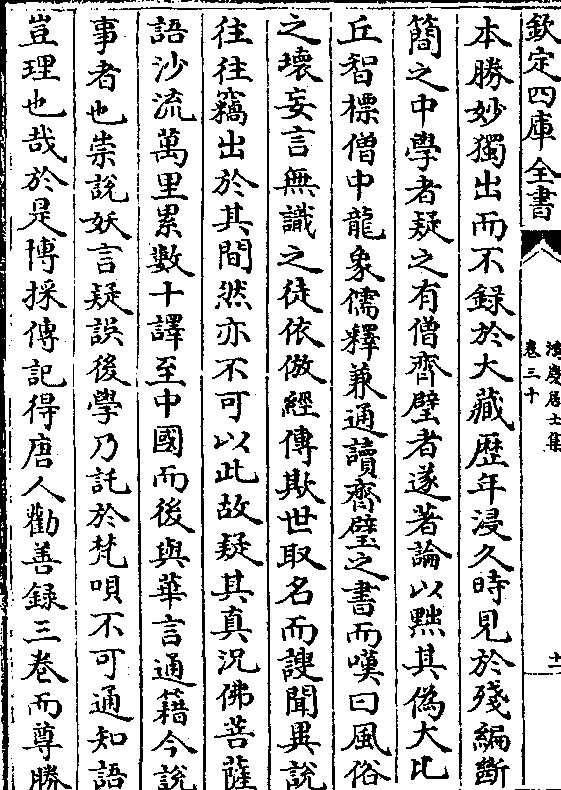 欽定四庫全書
鴻慶居士集
卷三十
十一
本勝妙獨出而不錄於大藏歴年浸久時見於殘編斷
簡之中學者疑之有僧齊璧者遂著論以黜其偽大比
丘智標僧中龍象儒釋兼通讀齊璧之書而嘆曰風俗
之壞妄言無識之徒依倣經傳欺世取名而謏聞異說
往往竊出於其間然亦不可以此故疑其真況佛菩薩
語沙流萬里累數十譯至中國而後與華言通籍今說
事者也祟說妖言疑誤後學乃託於梵唄不可通知語
豈理也哉於是博採傳記得唐人勸善錄三卷而尊勝